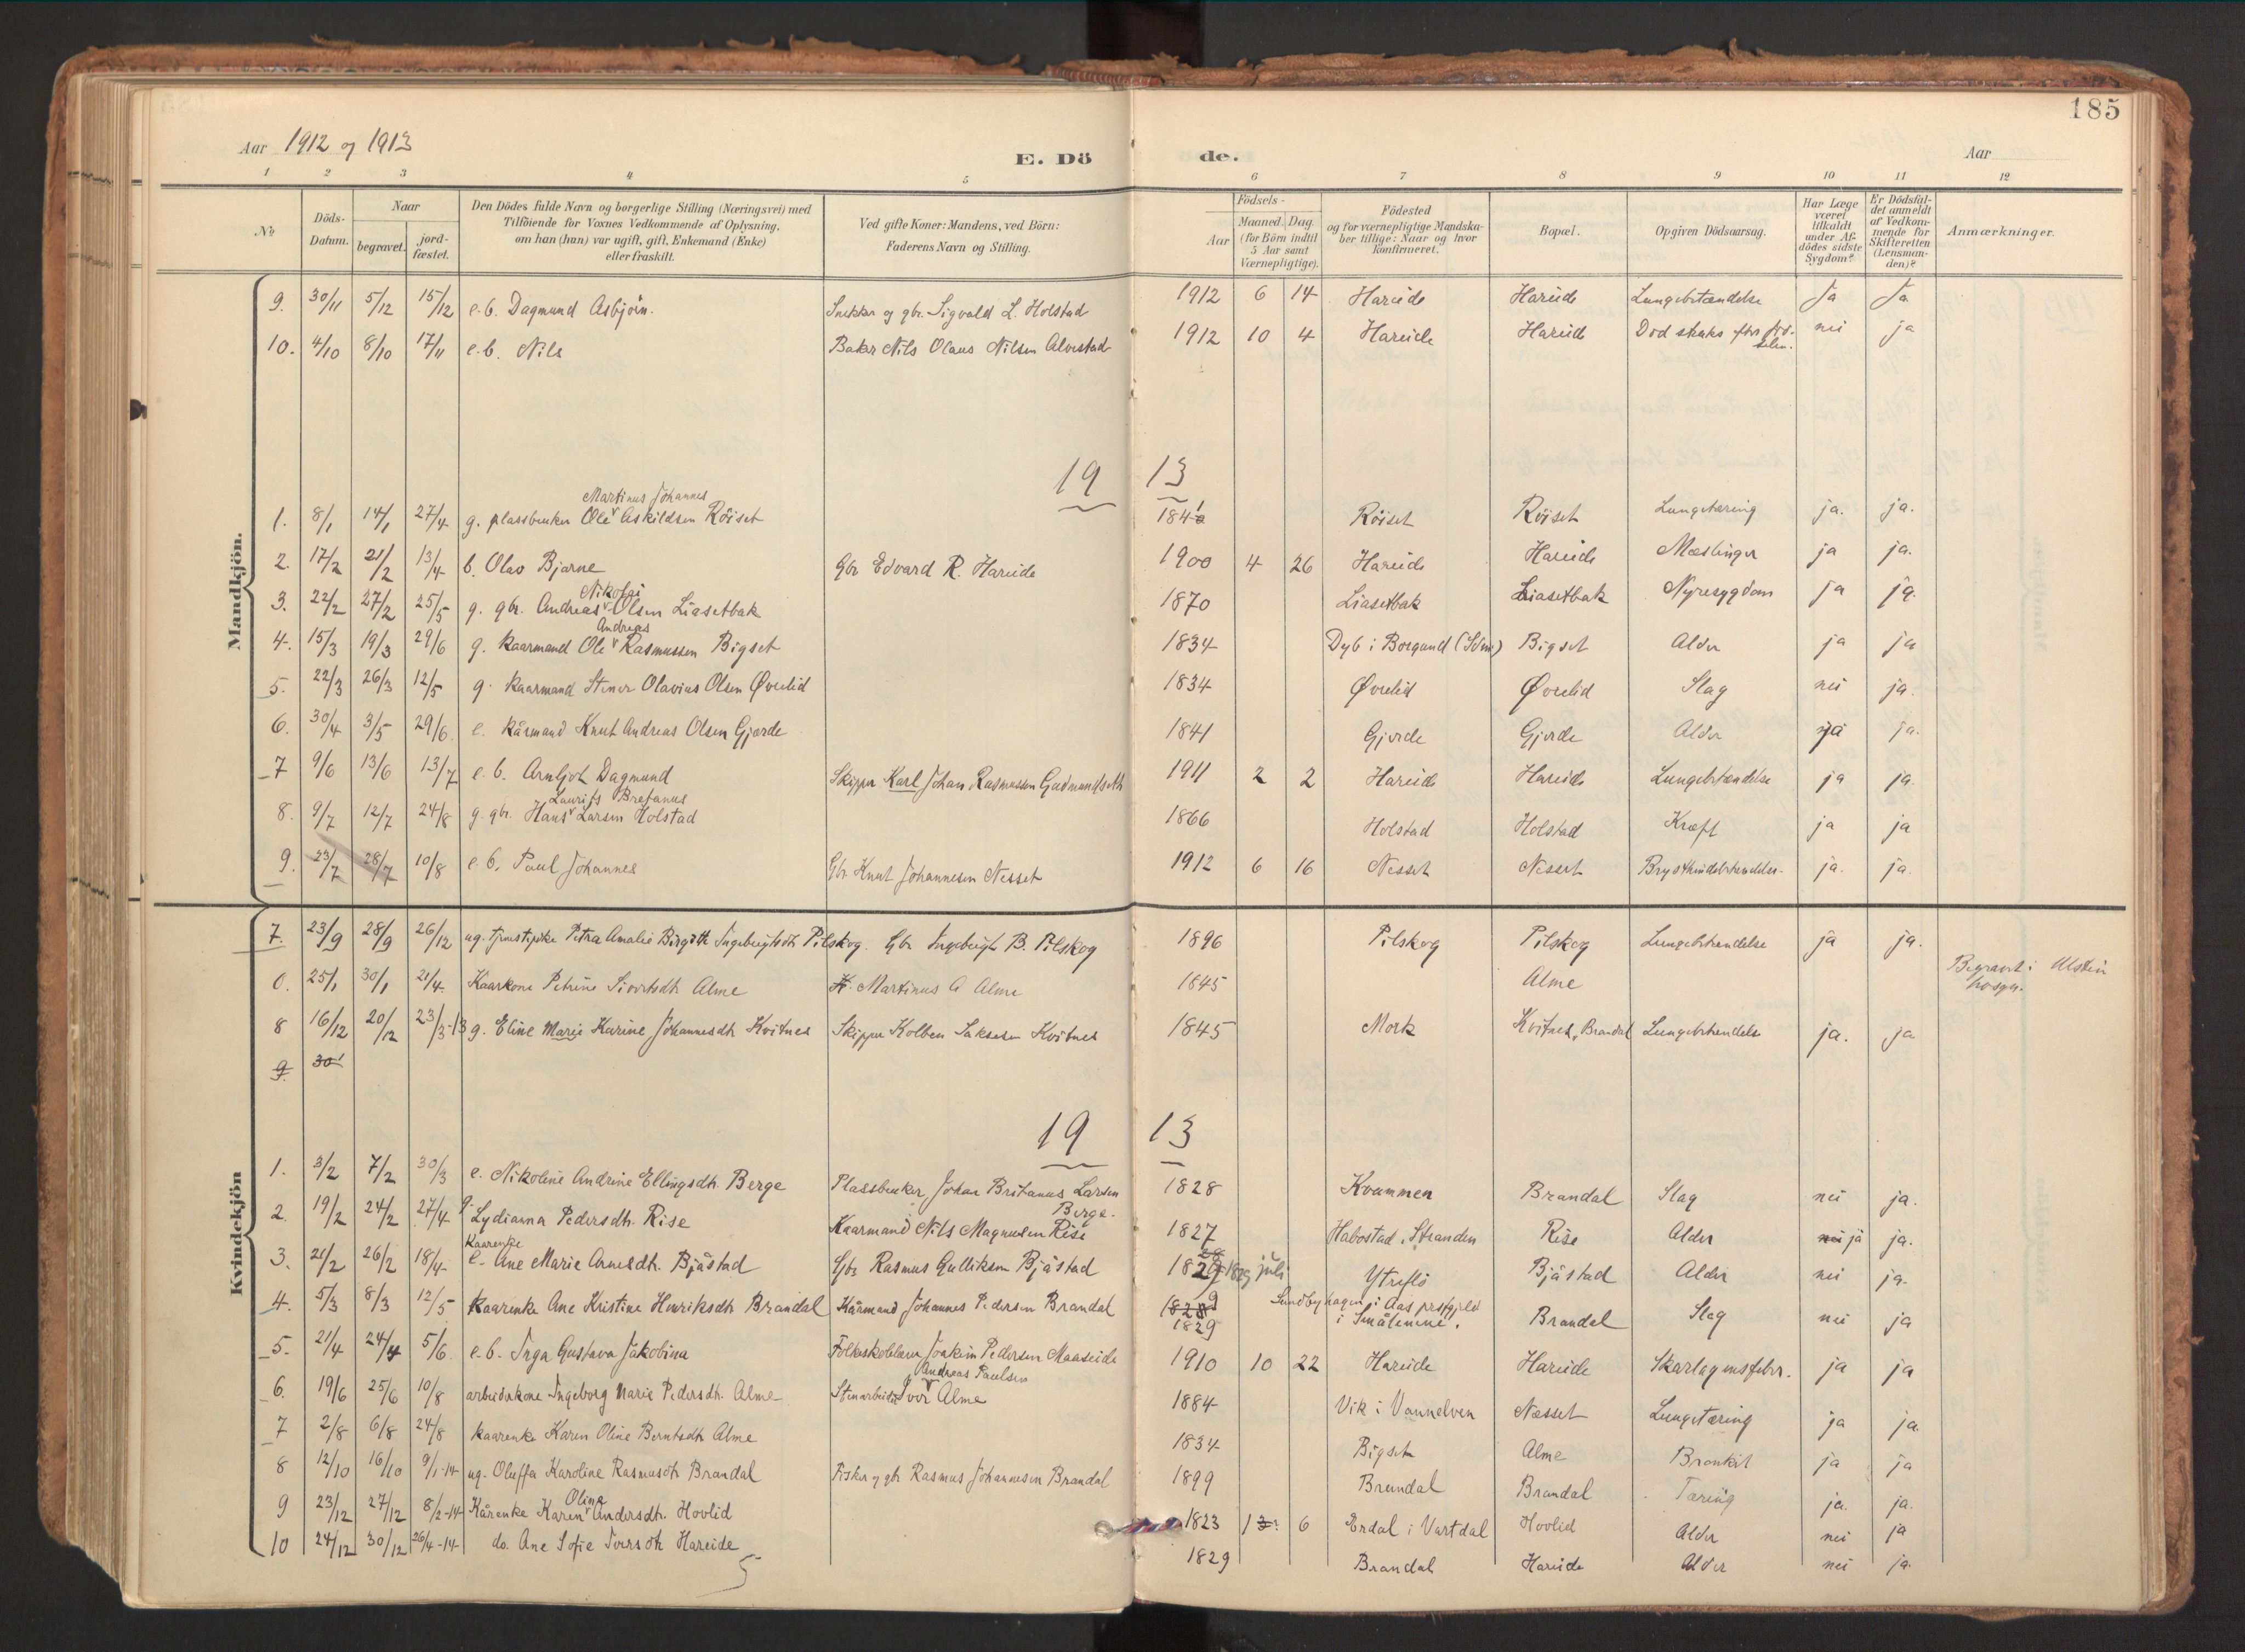 185
Aar 1912 og 1913
E. Dö de.
Aar
1 2 3 4 5 6 7 8 9 10 11 12
No
Döds-Datum.
Naar
begravet.
jord-fæstet.
Den Dödes fulde Navn og borgerlige Stilling (Næringsvei) med
Tilföiende for Voxnes Vedkommende af Oplysning,
om han (hun) var ugift, gift, Enkemand (Enke)
eller fraskilt.
Ved gifte Koner: Mandens, ved Börn:
Faderens Navn og Stilling.
Födsels-
Aar
Maaned. Dag.
(for Börn indtil
5 Aar samt
Værnepligtige).
Födested
og for værnepligtige Mandska-
ber tillige: Naar og hvor
konfirmeret.
Bopæl.
Opgiven Dödsaarsag.
Har Læge
været
tilkaldt
under Af-
dödes sidste
Sygdom?
Er Dödsfal-
det anmeldt
af Vedkom-
mende for
Skifteretten
(Lensman-
den)?
Anmærkninger.
Mandkjön.
9. 30/11 5/12 15/12 e.b. Dagmund Asbjörn. Snekker og gbr. Sigvald L. Holstad 1912 6 14 Hareide Hareide Lungebetændelse Ja Ja
10. 4/10 8/10 17/11 e.b. Nils Baker Nils Olaus Nilsen Alvestad 1912 10 4 Hareide Hareide Död straks efter föd-selen. nei ja
19 13
Martinus Johannes
1. 8/1 14/1 27/4 g. plassbruker Ole Askildsen Röiset 1841 Röiset Röiset Lungetæring ja. ja.
2. 17/2 21/2 13/4 b. Olav Bjarne Gbr Edvard R. Hareide 1900 4 26 Hareide Hareide Mæslinger ja ja.
Nikolai
3. 22/2 27/2 25/5 g. gbr. Andreas Olsen Liasetbak 1870 Liasetbak Liasetbak Nyresygdom ja ja.
Andreas
4. 15/3 19/3 29/6 g. kaarmand Ole Rasmussen Bigset 1834 Dyb i Borgund (Sdm) Bigset Alder ja ja
5. 22/3 26/3 12/5 g. kaarmand Stener Olavius Olsen Øvrelid 1834 Øvrelid Øvrelid Slag nei ja.
6. 30/4 3/5 29/6 e. kårmand Knut Andreas Olsen Gjerde 1841 Gjerde Gjerde Alder ja ja.
7 9/6 13/6 13/7 e.b. Arnljot Dagmund Skipper Karl Johan Rasmussen Gudmundseth 1911 2 2 Hareide Hareide Lungebetændelse ja ja.
Laurits Bretanus
8. 9/7 12/7 24/8 g. gbr. Hans Larsen Holstad 1866 Holstad Holstad Kræft ja ja
9. 23/7 28/7 10/8 e.b. Paul Johannes Gbr Knut Johannesen Nesset 1912 6 16 Nesset Nesset Brysthindebetændelse. ja. ja.
Kvindekjön
7. 23/9 28/9 26/12 ug. tjenestpike Petra Amalie Birgitte Ingebrigtsdtr Pilskog. Gbr Ingebrigt B. Pilskog 1896 Pilskog Pilskog Lungebetændelse ja ja.
0. 25/1 30/1 21/4 Kaarkone Petrine Sivertsdtr Alme K. Martinus A Alme 1845 Alme Begravet i Ulstein
8 16/12 20/12 23/3-13 g. Eline Marie Karine Johannesdtr Kvitnes Skipper Kolben Saksesen Kvitnes 1845 Mork Kvitnes, Brandal Lungebetændelse ja. ja
9. 30/
19 13
1. 3/2 7/2 30/3 e. Nikoline Andrine Ellingsdtr. Berge Plassbruker Johan Britanus Larsen Berge. 1828 Kvammen Brandal Slag nei ja.
2. 19/2 24/2 27/4 g. Lydianna Pedersdtr. Rise Kaarmand Nils Magnusen Rise 1827 Habostad, Stranden Rise Alder nei ja ja.
Kaarenke
3. 21/2 26/2 18/4 e. Ane Marie Arnesdtr. Bjåstad Gbr Rasmus Gulliksen Bjåstad 1829 1829 juli Ytreflö Bjåstad Alder nei ja.
4. 5/3 8/3 12/5 kaarenke Ane Kristine Henriksdtr Brandal Kårmand Johannes Pedersen Brandal 1828 1829 Sundbyhagen i Aas prstgjeld i Smålenene. Brandal Slag nei ja
5. 21/4 24/4 5/6 e.b. Inga Gustava Jakobina Folkeskolelærer Joakim Pedersen Maaseide 1910 10 22 Hareide Hareide Skarlagensfeber. ja ja
Andreas Paulsen
6. 19/6 25/6 10/8 arbeiderkone Ingeborg Marie Pedersdtr. Alme Stenarbeider Iver Alme 1884 Vik i Vannelven Nesset Lungetæring ja ja.
7 2/8 6/8 24/8 kaarenke Karen Oline Berntsdtr Alme 1834 Bigset Alme Bronkit ja ja
8 12/10 16/10 9/1-14 ug. Oluffa Karoline Rasmusdtr Brandal Fisker og gbr Rasmus Johannesen Brandal 1899 Brandal Brandal Tæring ja. ja.
Olina
9 23/12 27/12 8/2-14 Kårenke Karen Andersdtr. Hovlid 1823 13? 6 Erdal i Vartdal Hovlid Alder nei ja
10 24/12 30/12 26/4-14 do. Ane Sofie Iversdtr Hareide 1829 Brandal Hareide Alder nei ja.
5